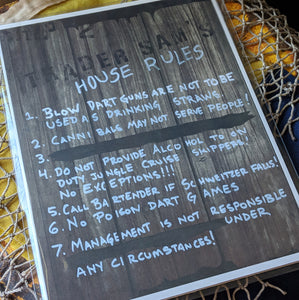 TRADER SAM'S
HOUSE RULES
1. BLOW DART GUNS ARE NOT TO BE
USED AS DRINKING STRAWS.
2. CANNIBALS MAY NOT SERVE PEOPLE!
3.
4. DO NOT PROVIDE ALCOHOL TO ON
DUTY JUNGLE CRUISE SKIPPERS!
NO EXCEPTIONS!!!
5. CALL BARTENDER IF SCHWEITZER FALLS!
6. NO POISON DART GAMES
7. MANAGEMENT IS NOT RESPONSIBLE
UNDER
ANY CIRCUMSTANCES!